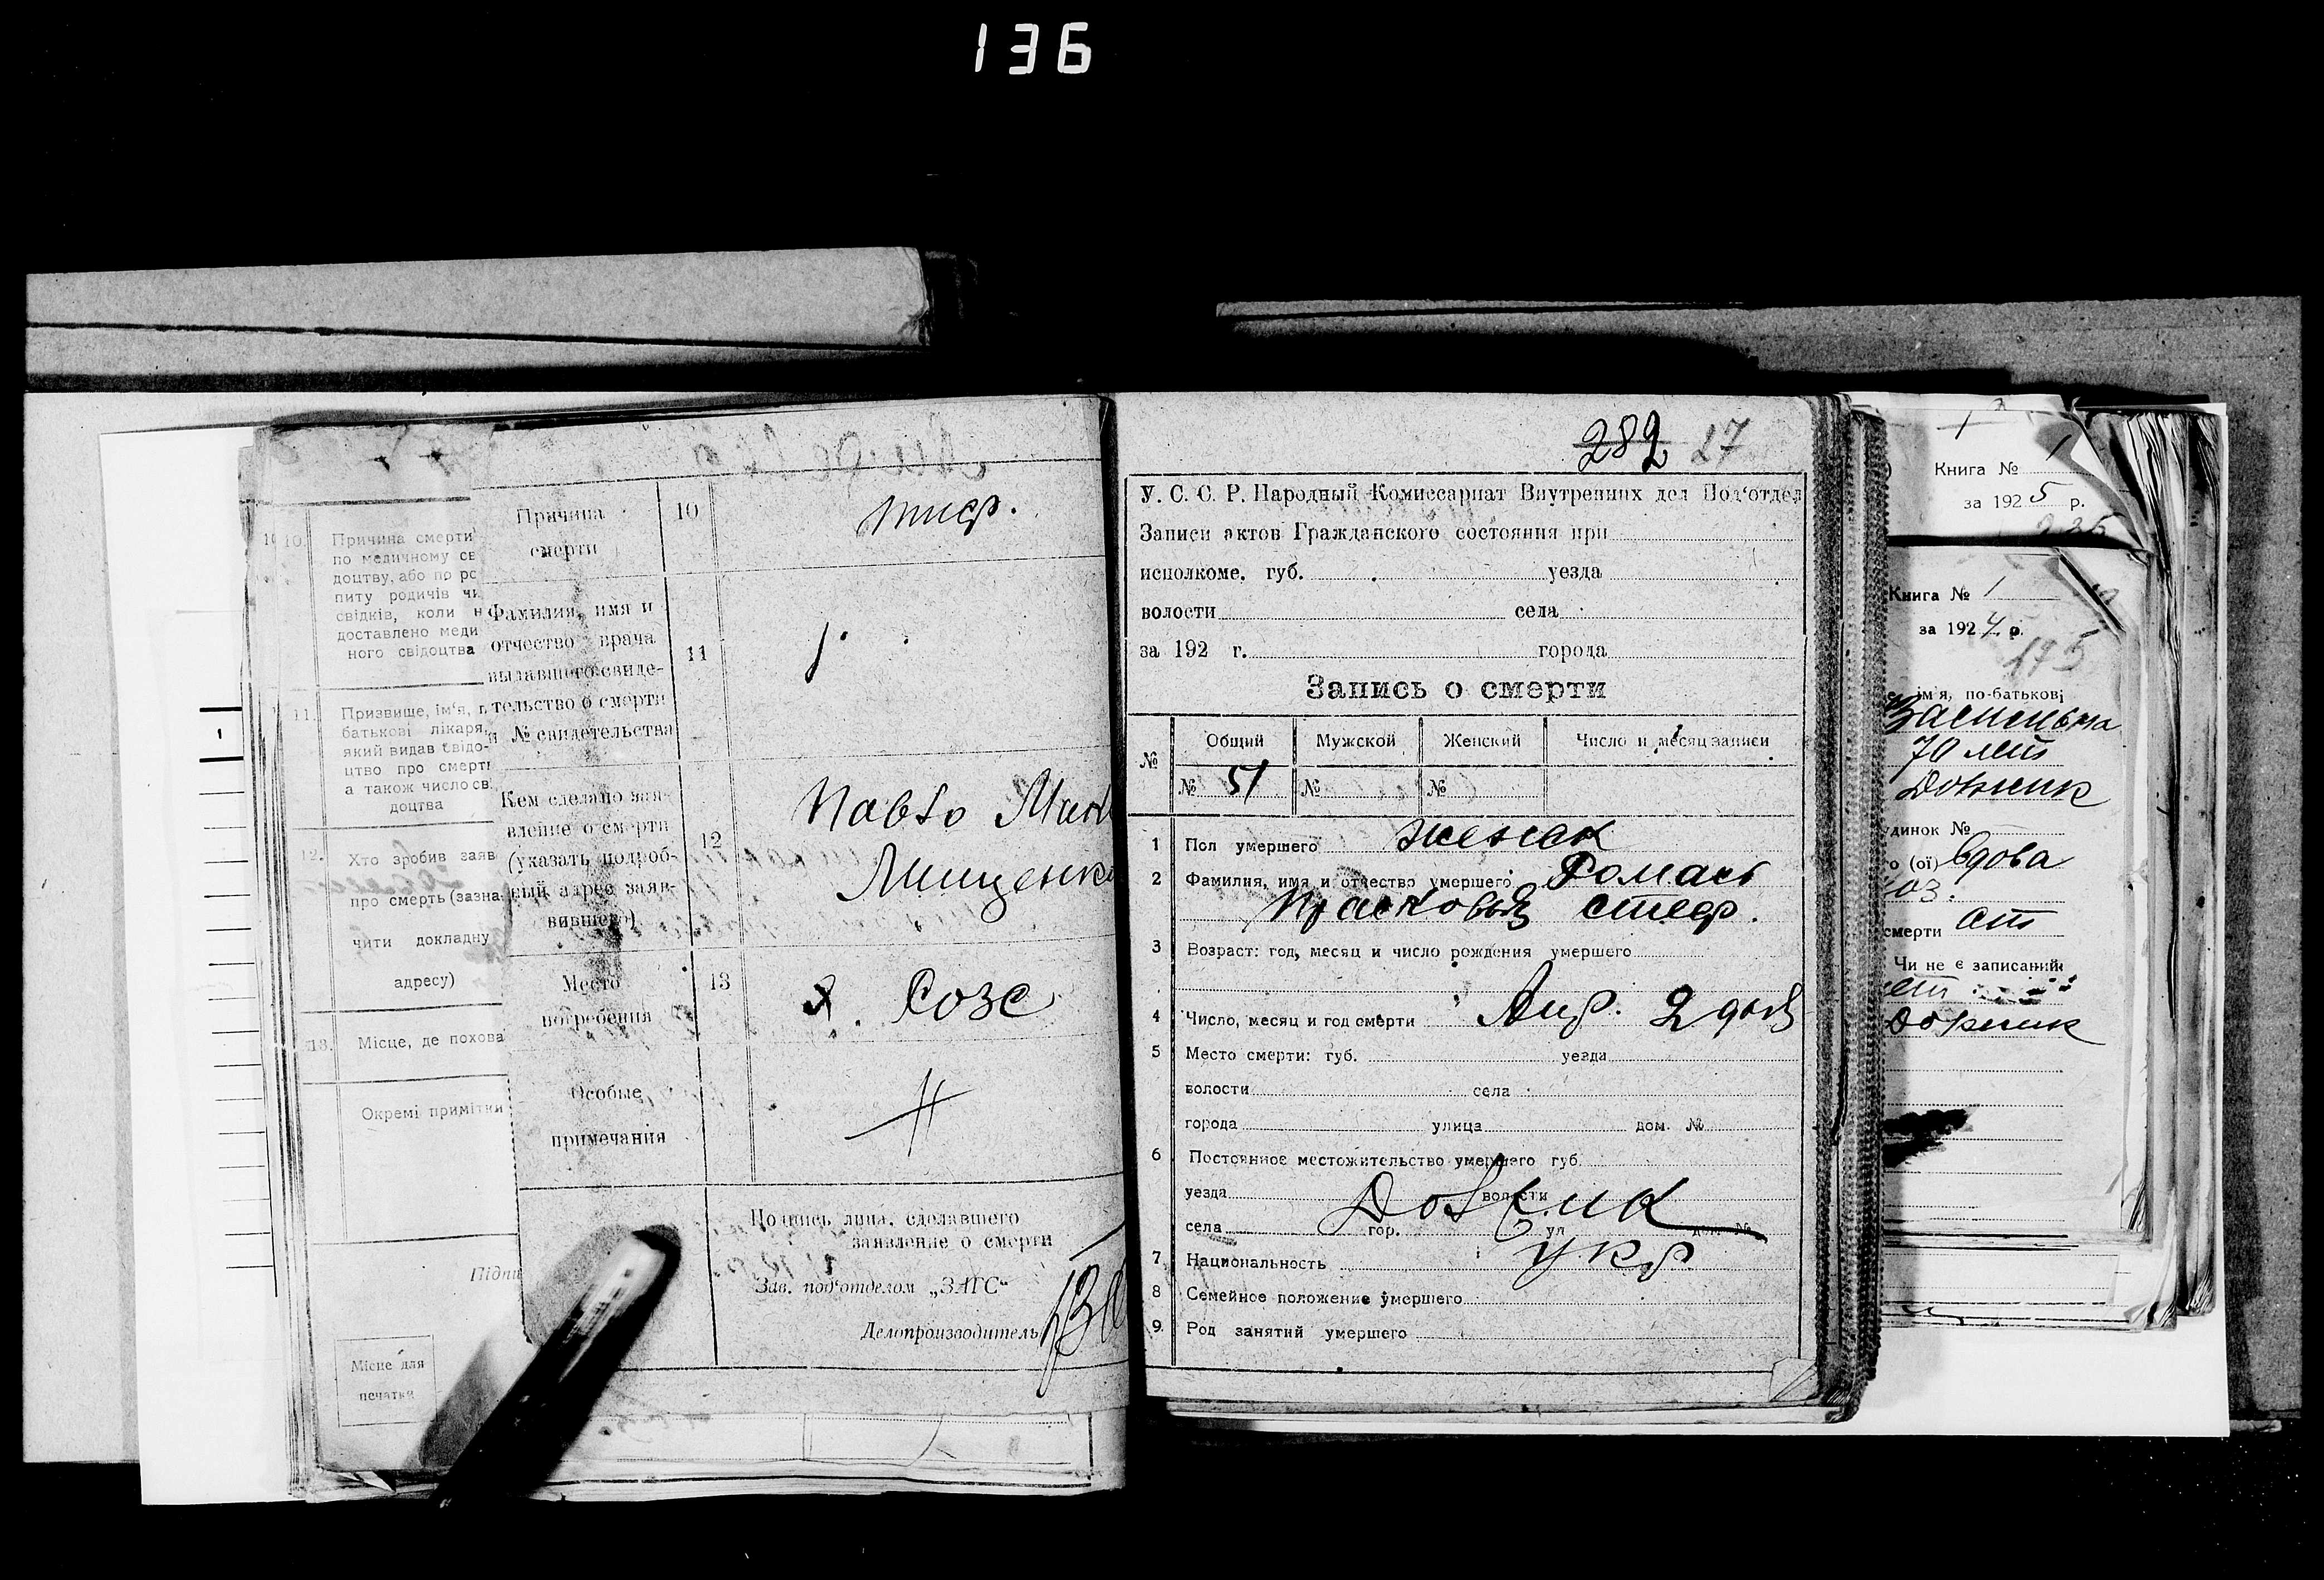 136
10.
Причина смерти
по медичному св
доцтву, або по ро
питу родичів чи
свідків, коли н
доставлено меди
ного свідоцтва
11.
Призвище, ім'я, п
батькові лікаря,
який видав свідо-
цтво про смерть
а також число св.
доцтва
12.
Хто зробив заяв
про смерть (зазна-
чити докладну
адресу)
13.
Місце, де похова
Окремі примітки
Підпи
Місце для
печатки
Причина
смерти
10
тиф.
Фамилия, имя и
отчество врача
выдавшего свиде-
тельство о смерти
и № свидетельства
11
Кем сделано зая-
вление о смерти
(указать подроб-
ный адрес заяв-
вившего)
12
Павло
Мищенко
Место
погребения
13
Особые
примечания
Подпись лица, сделавшего
заявление о смерти
Зав. под'отделом „ЗАГС“
Делопроизводитель
282 27
У. С. С. Р. Народный Комиссариат Внутренних дел Под'отдел
Записи актов Гражданского состояния при
исполкоме. губ. уезда
волости села
за 192 г. города
Запись о смерти
№ Общий Мужской Женский Число и месяц записи
№ 51 № №
1 Пол умершего женск
2 Фамилия, имя и отчество умершего Ромась
Прасковья Стеф.
3 Возраст: год, месяц и число рождения умершего
4 Число, месяц и год смерти Апр. 2 дня
5 Место смерти: губ. уезда
волости села
города улица дом. №
6 Постоянное местожительство умершего губ.
уезда волости
села Довжик гор. ул дом. №
7 Национальность укр
8 Семейное положение умершего
9. Род занятий умершего
Книга № 1
за 1925 р.
Книга № 1
за 1924 р.
175
ім'я, по-батькові
70 лет
Довжик
удинок №
о (ої) вдова
смерти
Чи не є записаний